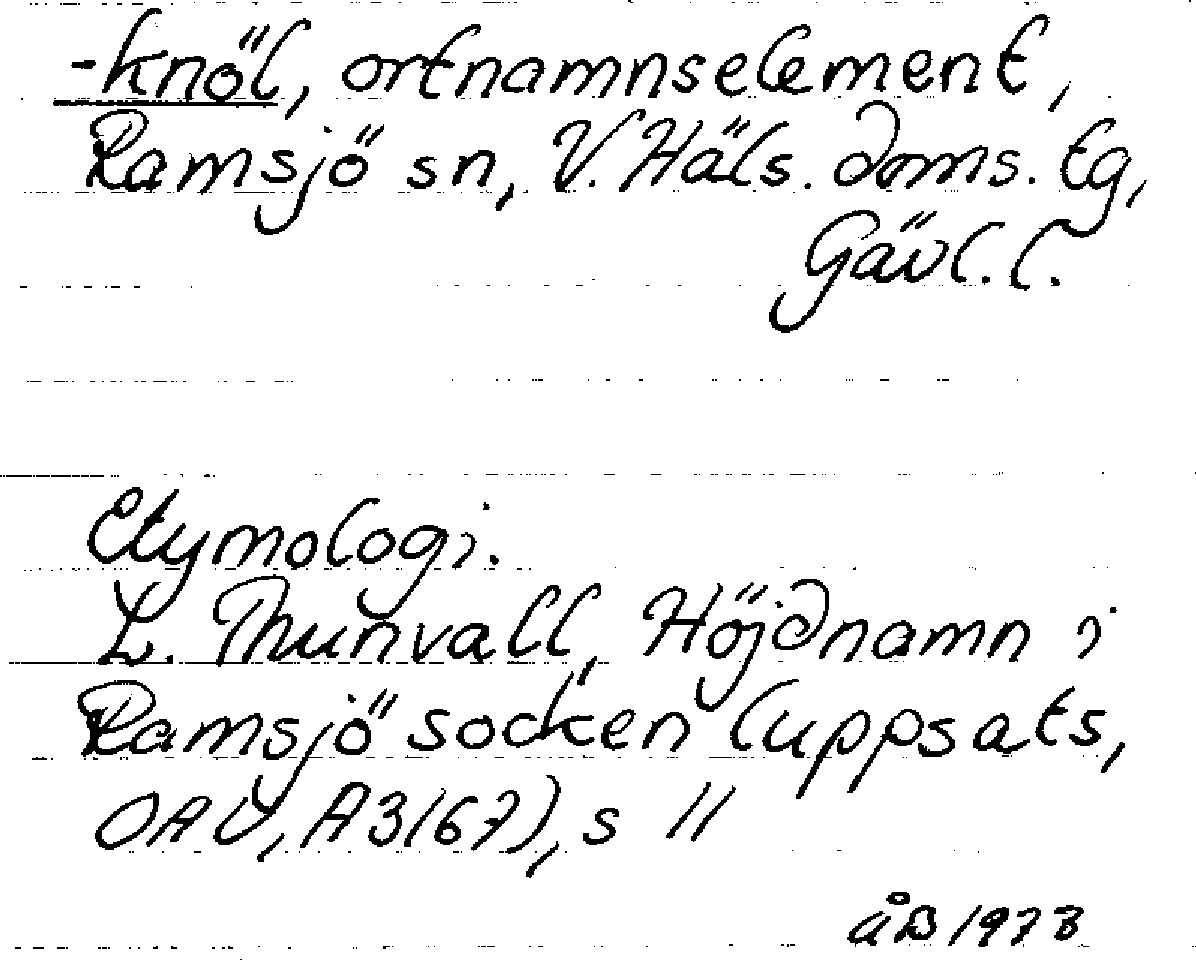 -knöl, ortnamnselement,
Ramsjö sn, V. Häls. doms. tg,
Gävl. l.
Etymologi.
L. Thunvall, Höjdnamn i
Ramsjö socken (uppsats,
OAU, A 3167), s 11
åB 1973